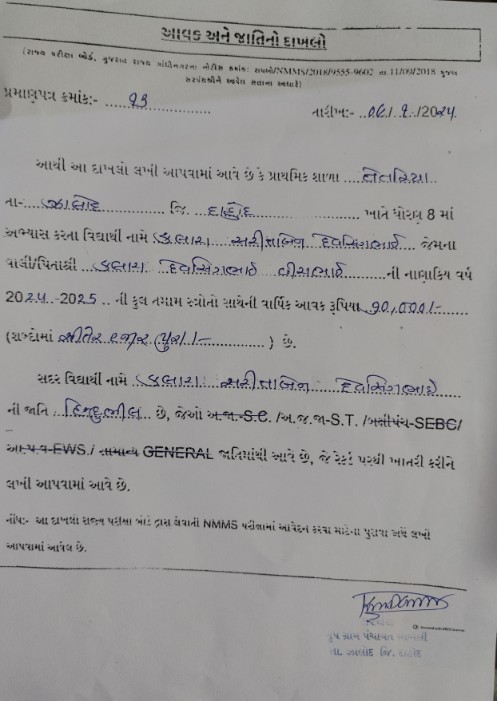 આવક અને જાતિનો દાખલો
(રાજ્ય પરીક્ષા બોર્ડ, ગુજરાત રાજ્ય ગાંધીનગરના નોટીસ ક્રમાંક: રાપબો/NMMS/2018/9555-9602 તા.11/09/2018 મુજબ
સરપંચશ્રીને આપેલ સત્તાના આધારે)
પ્રમાણપત્ર ક્રમાંક:- ........ તારીખ:- ..../2024
આથી આ દાખલો લખી આપવામાં આવે છે કે પ્રાથમિક શાળા ....
તા-....ઝાલોદ.... જિ. દાહોદ ........ ખાતે ધોરણ 8 માં
અભ્યાસ કરતા વિદ્યાર્થી નામે ડલારા સરીતાબેન દલસિંગભાઈ જેમના
વાલી/પિતાશ્રી ..ડલારા દલસિંગભાઈ ........ની નાણાકિય વર્ષ
2024-2025.. ની કુલ તમામ સ્ત્રોતો સાથેની વાર્ષિક આવક રૂપિયા 70,000/-
(શબ્દોમાં સીતેર હજાર પુરા/-........) છે.
સદર વિદ્યાર્થી નામે ..ડલારા સરીતાબેન દલસિંગભાઈ
ની જાતિ હિન્દુભીલ છે, જેઓ અ.જા.-S.C. /અ.જ.જા-S.T. /બક્ષીપંચ-SEBC/
આ.પ.વ-EWS./ સામાન્ય GENERAL જાતિમાંથી આવે છે, જે રેકર્ડ પરથી ખાતરી કરીને
લખી આપવામાં આવે છે.
નોંધ:- આ દાખલો રાજ્ય પરીક્ષા બોર્ડ દ્વારા લેવાતી NMMS પરીક્ષામાં આવેદન કરવા માટેના પુરાવા અર્થે લખી
આપવામાં આવેલ છે.
ગ્રુપ ગ્રામ પંચાયત
તા. ઝાલોદ જિ. દાહોદ